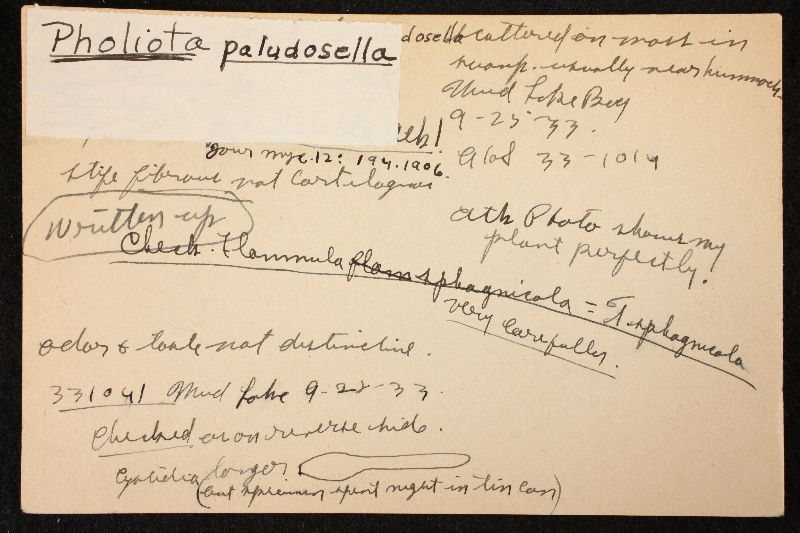 Pholiota paludosella
dosella
scattered on moss in
swamp. usually near hummocks
Mud Lake Bog
9-25-33.
AHS 33-1014
Jour myc. 12: 194. 1906.
stipe fibrous not cartilaginous
Written up
Atk Photo shows my
plant perfectly!
Check. Flammula flam sphagnicola = F. sphagnicola
very carefully.
odor & taste not distinctive.
331041 Mud Lake 9-28-33.
Checked as on reverse side.
Cystidia longer
(but specimen spent night in tin can)